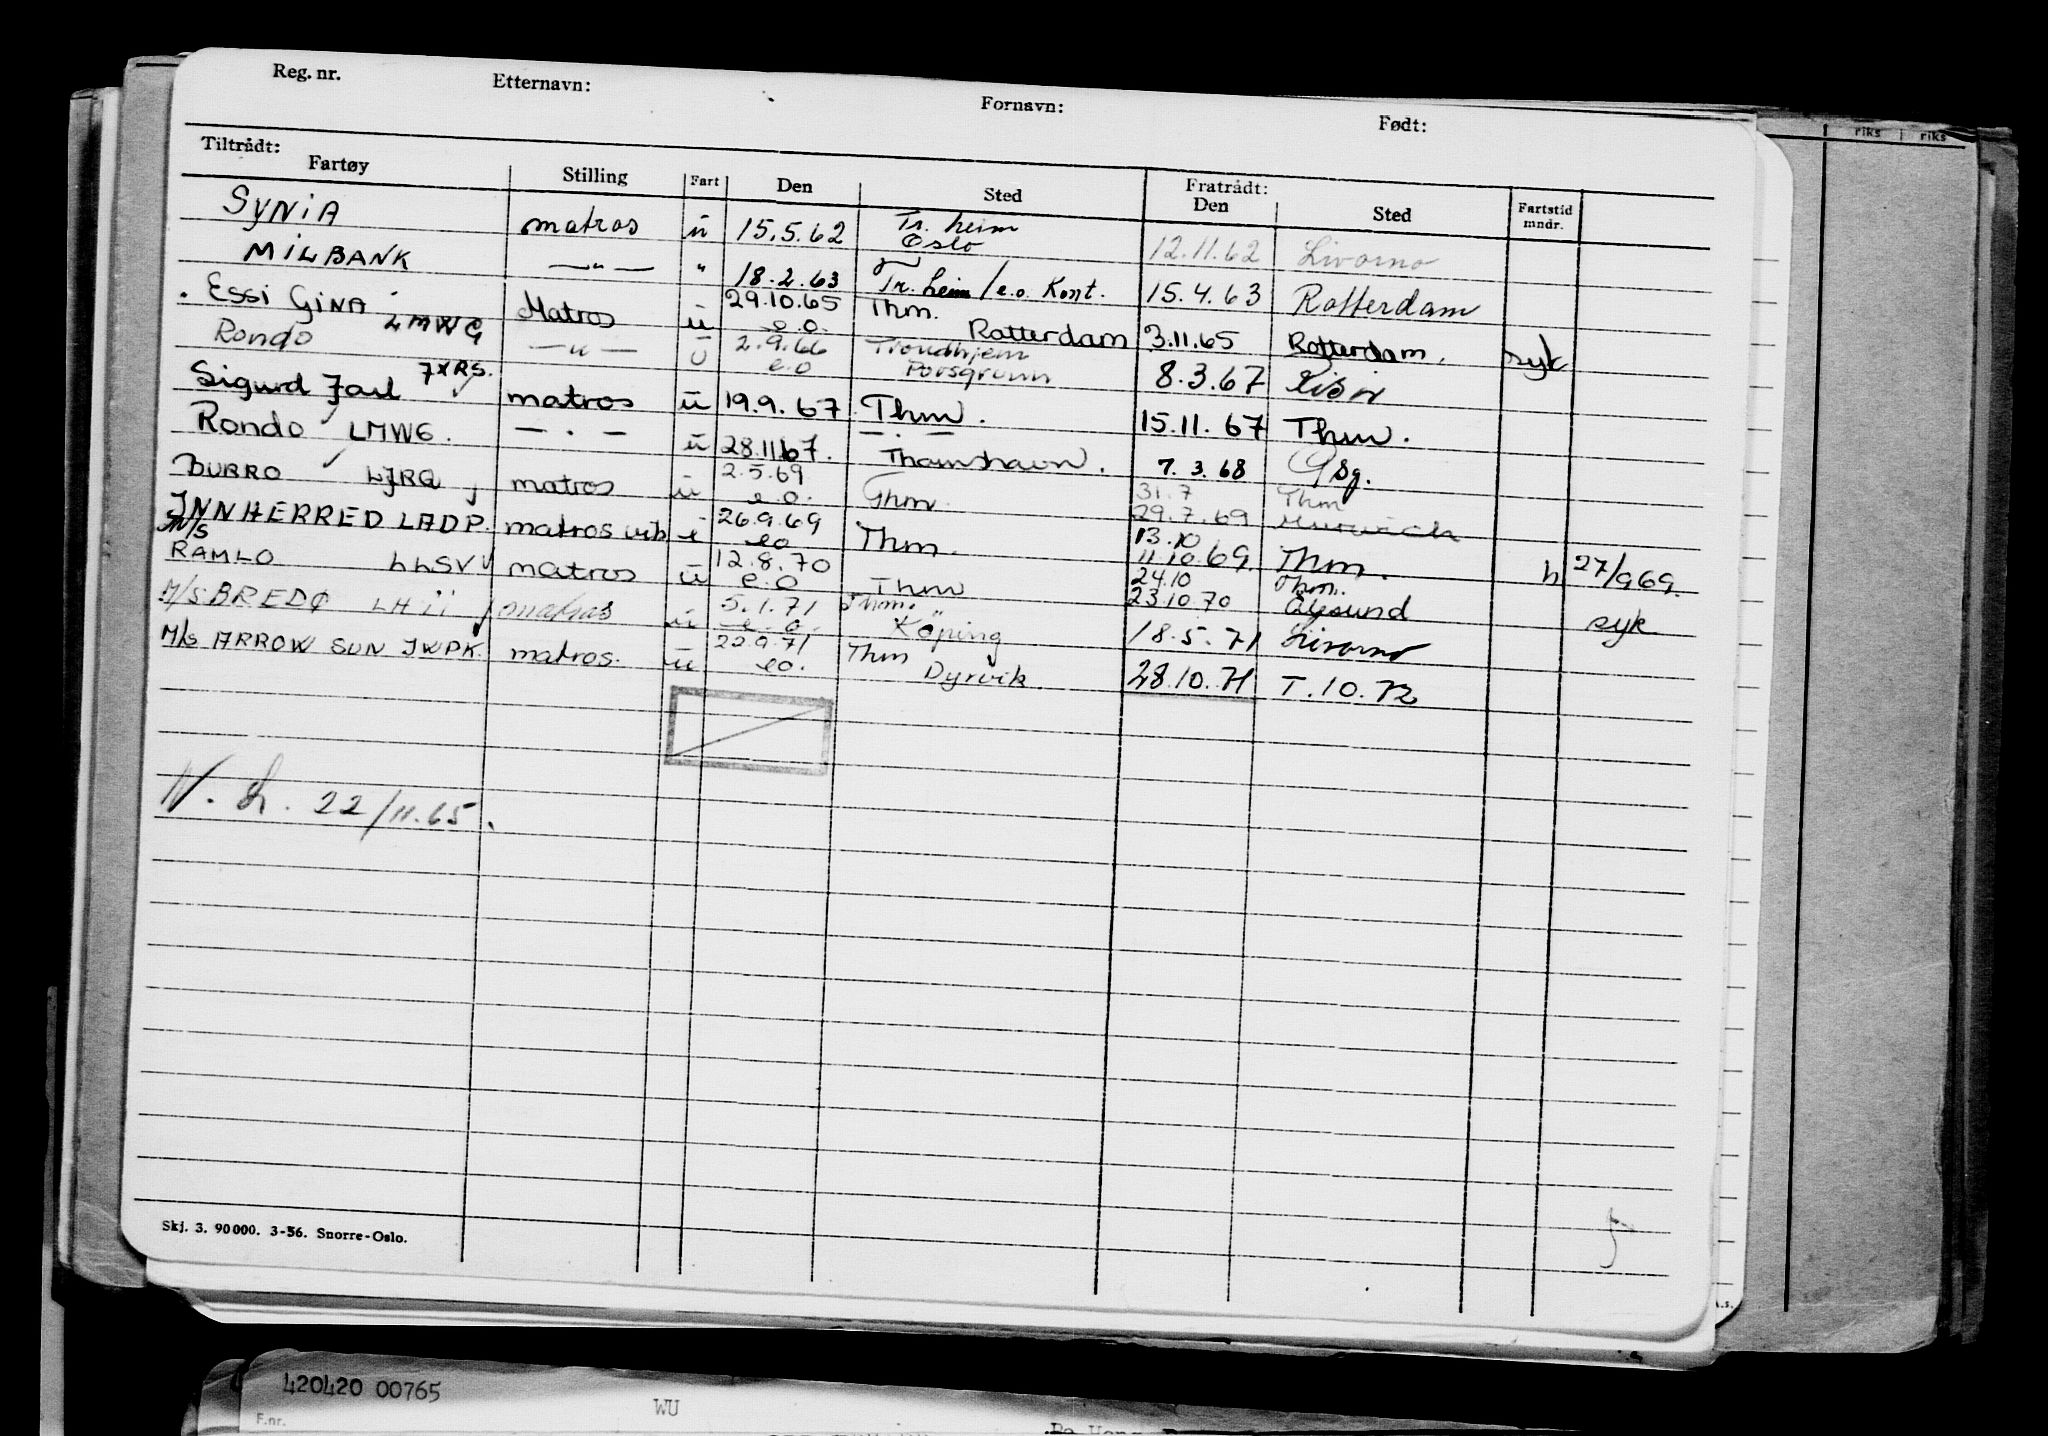 Reg. nr. Etternavn: Fornavn: Født:
Tiltrådt: Fratrådt:
Fartøy Stilling Fart Den Sted Den Sted Fartstid mndr.
SYNIA matros u 15.5.62 Tr. heim Oslo 12.11.62 Livorno
MILBANK —"— " 18.2.63 Tr. heim / e.o. Kont. 15.4.63 Rotterdam
ESSI GINA Matros u 29.10.65 e.o. Thm. Rotterdam 3.11.65 Rotterdam. syk
Rondo LMWG —"— u 2.9.66 e.o Trondhjem Porsgrunn 8.3.67
Sigurd Jarl JXRS. matros u 19.9.67 Thm. 15.11.67 Thm.
Rondo LMWG. — . — u 28.11.67. — . — Thamshavn. 7.3.68 Psg.
BURRO LJRQ matros u 2.5.69 e.o. Thm. 31.7 29.7.69 Thm
INNHERRED LADP. matros vik i 26.9.69 eo Thm. 13.10 11.10.69 Thm. h 27/9 69.
M/S RAMLO LLSV matros u 12.8.70 e.o Thm 24.10 23.10.70 Thm. Ålesund syk
M/S BREDO matros u 5.1.71 e.o. Thm. " Köping 18.5.71 Livorno
M/s ARROW SUN JWPK. matros. u 22.9.71 eo. Thm Dyrvik 28.10.71 T.10.72
N. L. 22/11.65.
Skj. 3. 90000. 3-56. Snorre-Oslo.
riks riks
A.s.
420420 00765
F.nr. WU